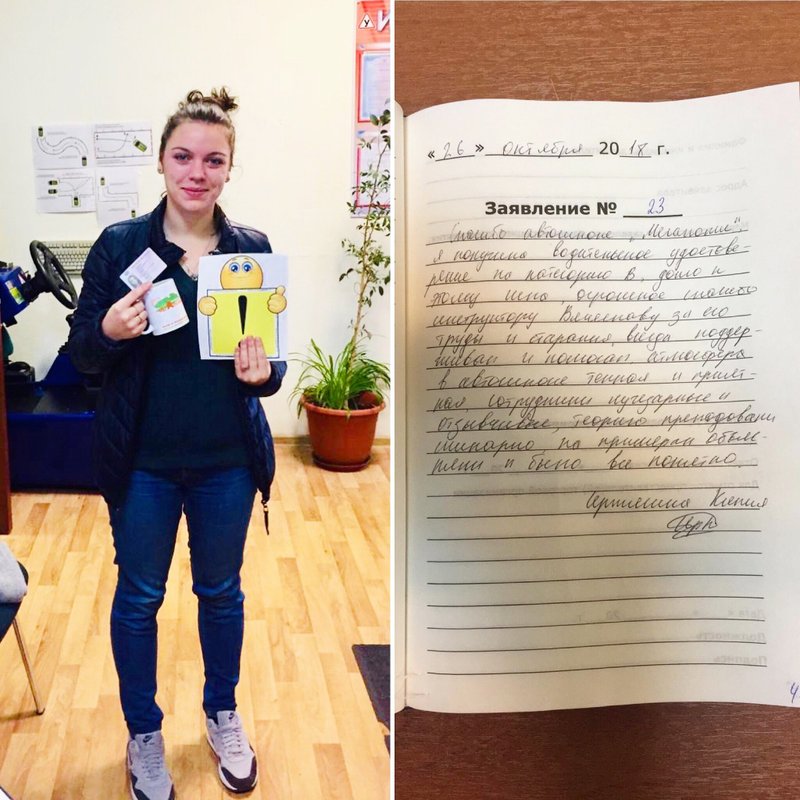 « 26 » октября 20 18 г.
Заявление № 23
Спасибо автошколе „Мегаполис",
я получила водительское удостове-
рение на категорию В, долго к
этому шла, огромное спасибо
инструктору Вячеславу за его
труды и старания, всегда поддер-
живал и помогал, атмосфера
в автошколе теплая и прият-
ная, сотрудники лучезарные и
отзывчивые, теорию преподавали
шикарно на примерах объяс-
няли и было все понятно.
Ксения